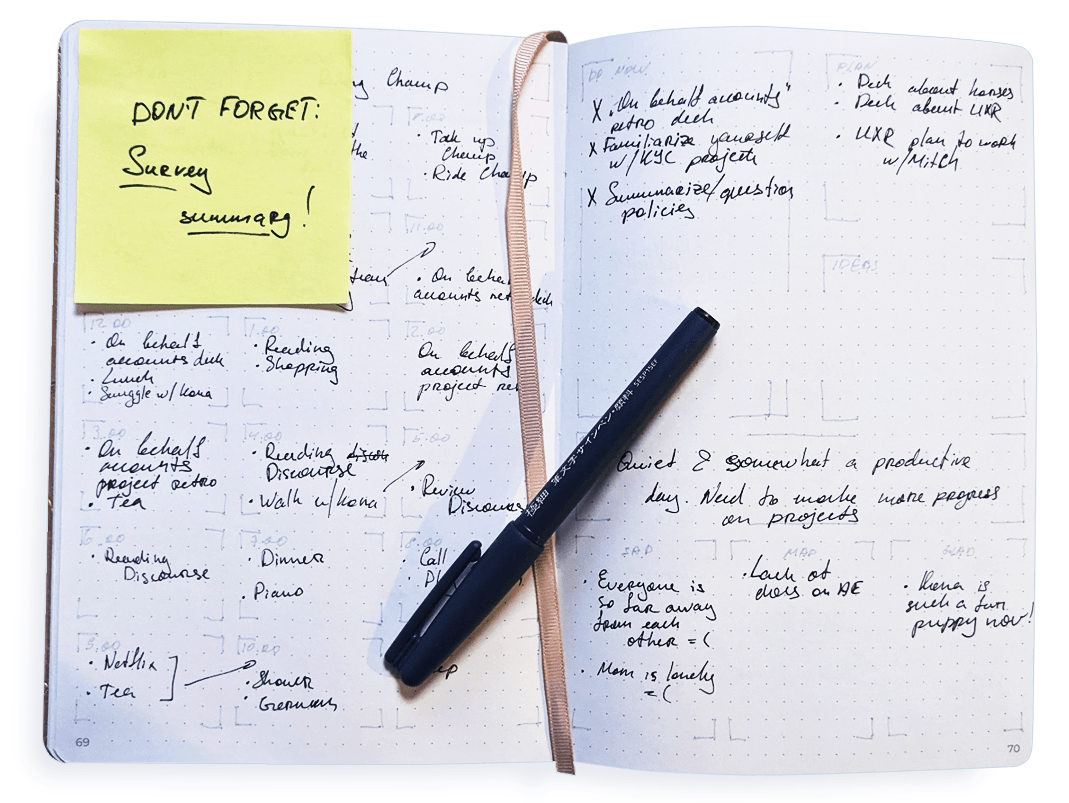 DON'T FORGET:
Survey
summary!
Champ
the
• Take up
Champ
• Ride Champ
11.00
• On behalf
accounts
12.00
• On behalf
accounts deck
• Lunch
• Snuggle w/Kona
1.00
• Reading
• Shopping
2.00
On behalf
accounts
project
3.00
• On behalf
accounts
project retro
• Tea
4.00
• Reading
Discourse
• Walk w/Kona
5.00
• Review
6.00
• Reading
Discourse
7.00
• Dinner
• Piano
8.00
• Call
• Netflix
• Tea
10.00
• Shower
• German
69
DO NOW
X "On behalf accounts"
retro deck
X Familiarize yourself
w/KYC projects
X Summarize/question
policies
PLAN
• Deck about horses
• Deck about UXR
• UXR plan to work
w/Mitch
IDEAS
Quiet & somewhat a productive
day. Need to make more progress
on projects
SAD
• Everyone is
so far away
from each
other =(
• Mom is lonely
=(
MAD
• Lack of
docs on AE
GLAD
• Kona is
such a fun
puppy now!
70